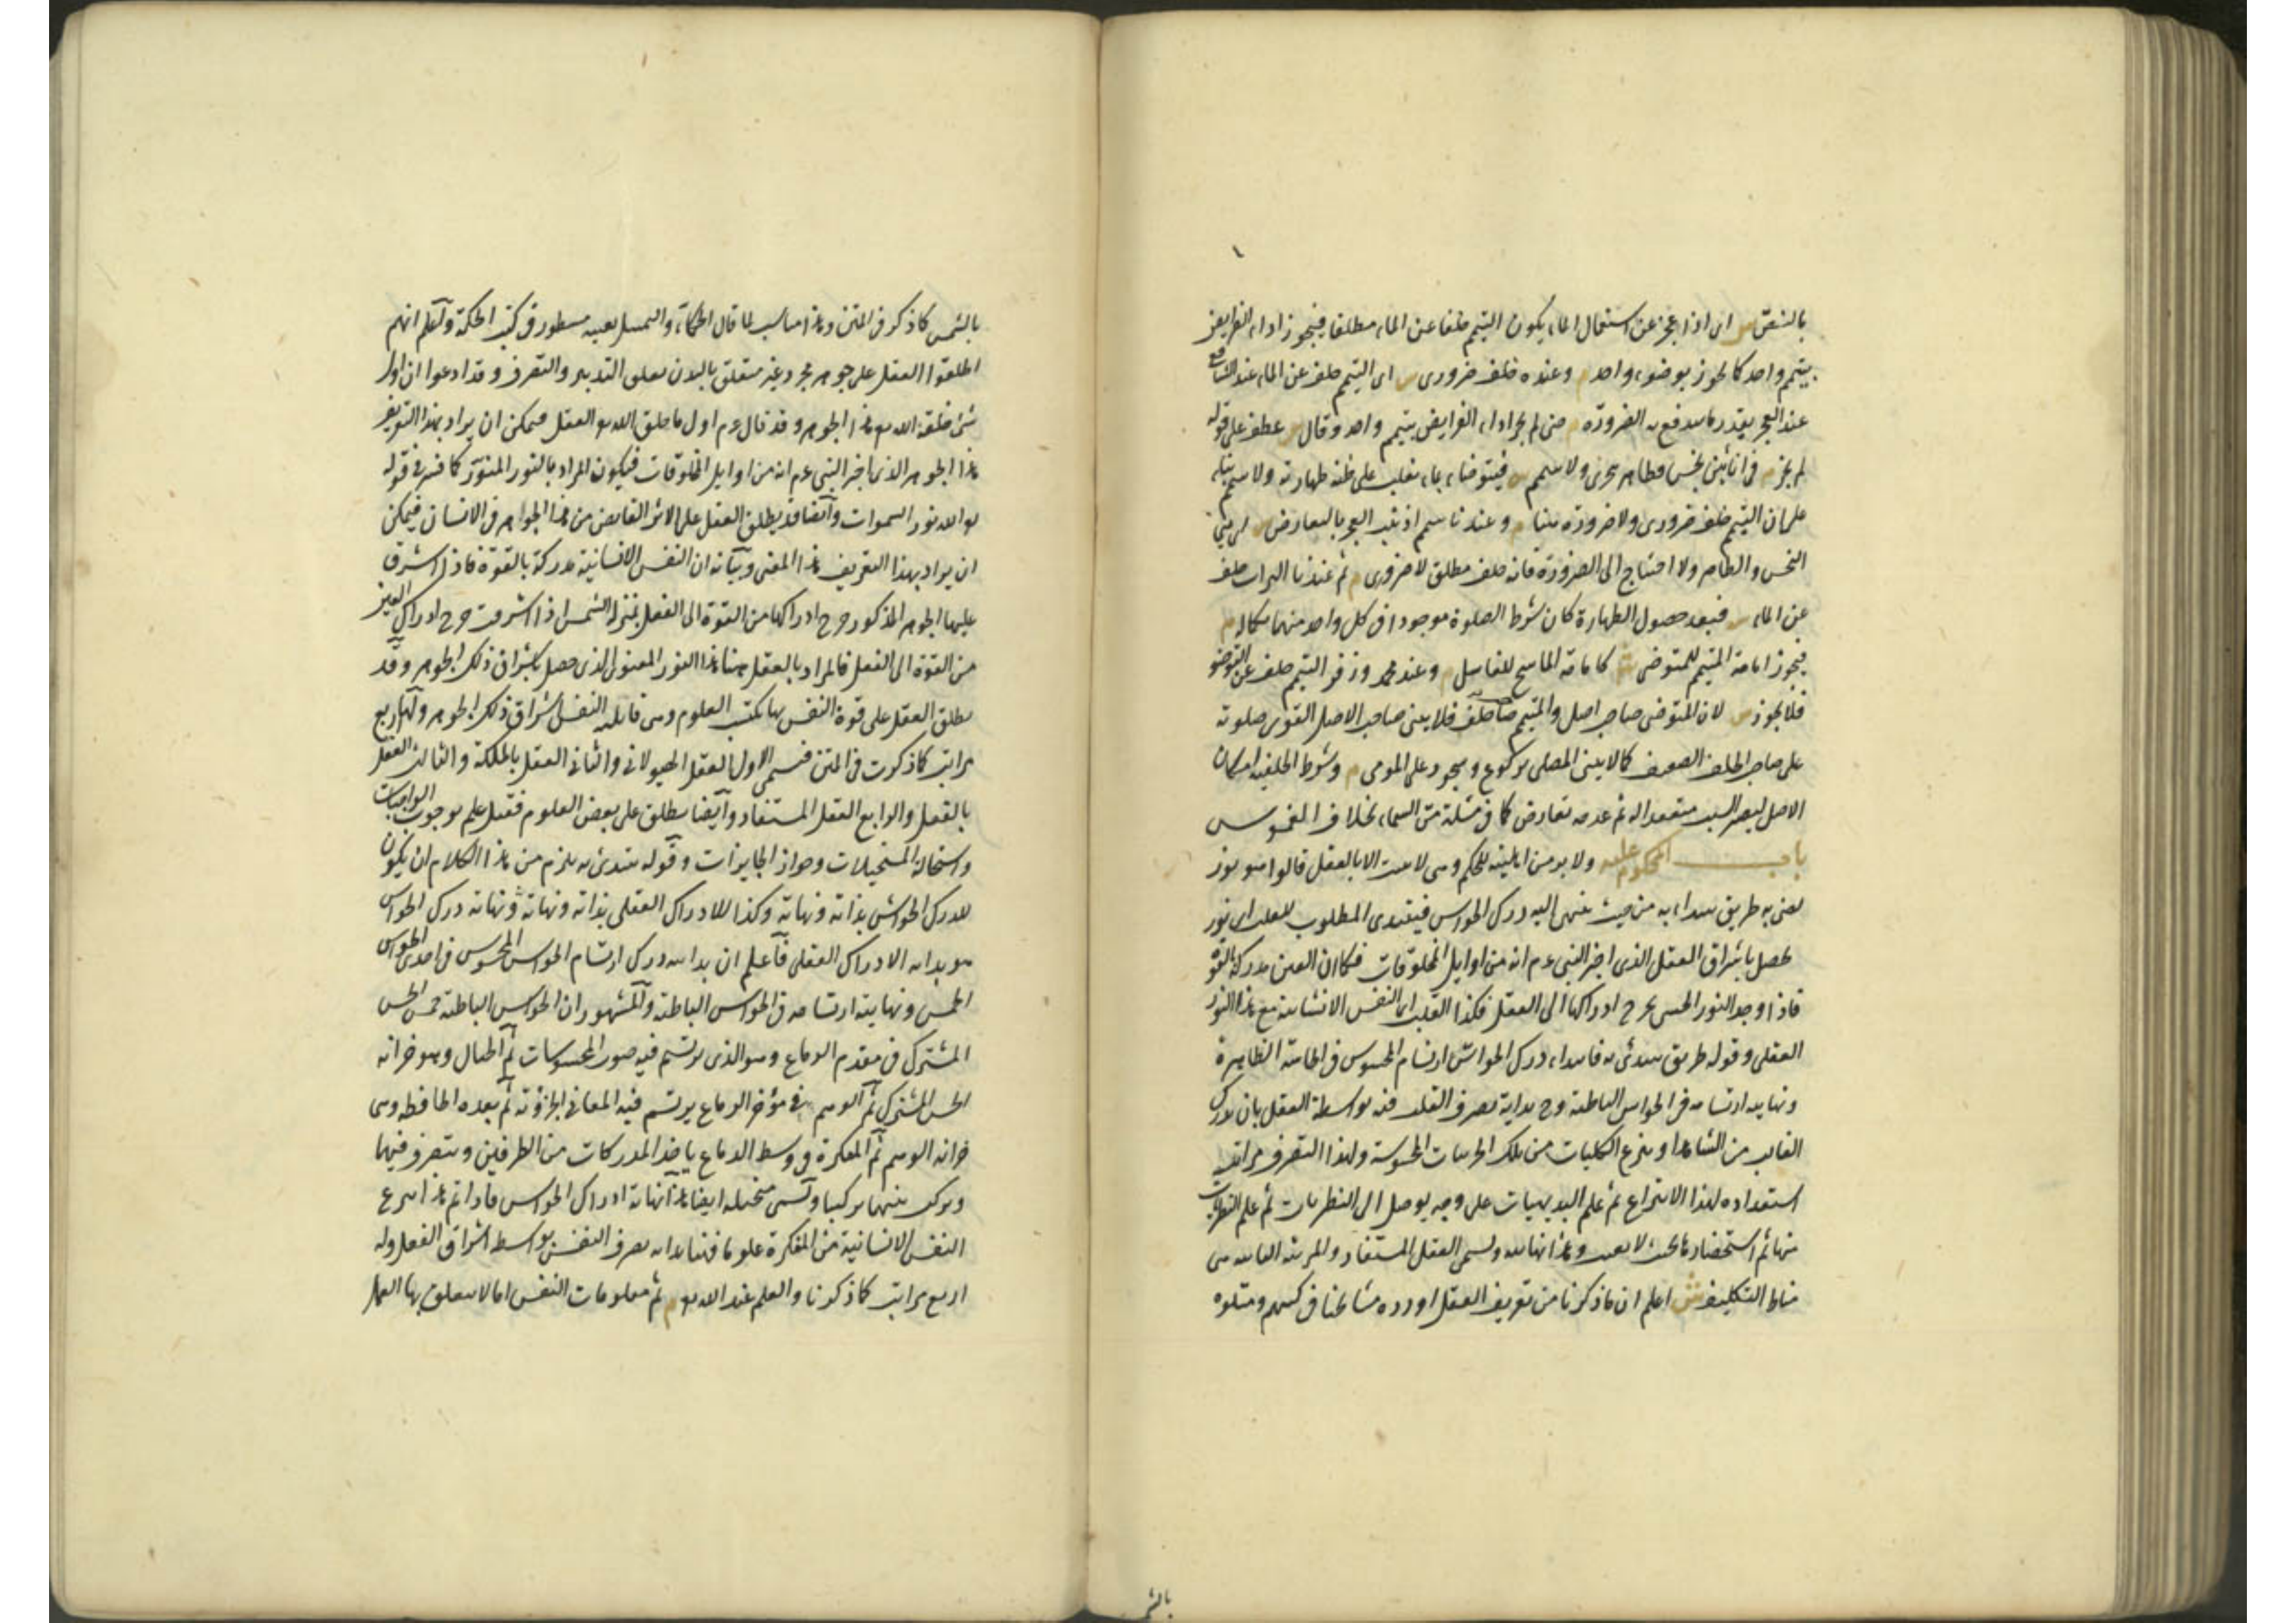 بالنص س اى اذا عجز عن استعمال الماء يكون التيمم خلفا عن الماء مطلقا فيجوز اداء الفرايض
بتيمم واحد كما يجوز بوضوء واحد م وعنده خلف ضرورى س اى التيمم خلف عن الماء عند الشافعى
عند العجز بقدر ما يندفع به الضرورة م حتى لم يجز اداء الفرايض بتيمم واحد وقال س عطف على قوله
لم يجز م فى انائين نجس وطاهر يتحرى ولا يتيمم س فيتوضاء بماء يغلب على ظنه طهارته ولا يتيمم بناء
على ان التيمم خلف ضرورى ولا ضرورة هنا م وعندنا يتيمم اذ ثبت العجز بالتعارض س اى بين
النجس والطاهر ولا احتياج الى الضرورة فانه خلف مطلق لا ضرورى م ثم عندنا التراب خلف
عن الماء س فبعد حصول الطهارة كان شرط الصلوة موجودا فى كل واحد منهما بكماله م
فيجوز امامة المتيمم للمتوضى ش كامامة الماسح للغاسل م وعند محمد وزفر التيمم خلف عن التوضو
فلا يجوز س لان المتوضى صاحب اصل والمتيمم صاحب خلف فلا يبنى صاحب الاصل القوى صلوته
على صاحب الخلف الضعيف كما لا يبنى المصلى بركوع وسجود على المومى م وشرط الخلفية امكان
الاصل ليصير السبب منعقدا له ثم عدمه بعارض كما فى مسئلة مس السماء بخلاف الغموس
باب المحكوم عليه ولا بد من اهليته للحكم وهى لا تثبت الا بالعقل قالوا هو نور
يضئ به طريق يبتداء به من حيث ينتهى اليه درك الحواس فيبتدى المطلوب للقلب اى نور
يحصل باشراق العقل الذى اخبر النبى عم انه من اوايل المخلوقات فكما ان العين مدركة بالقوة
فاذا وجد النور الحسى يخرج ادراكها الى الفعل فكذا القلب اى النفس الانسانية مع هذا النور
العقلى وقوله طريق يبتدئ به فابتداء درك الحواس ارتسام المحسوس فى الحاسة الظاهرة
ونهايته ارتسامه فى الحواس الباطنة وح بداية تصرف القلب فيه بواسطة العقل بان يدرك
الغايب من الشاهد او ينزع الكليات من تلك الجزئيات المحسوسة ولهذا التصرف مراتب
استعداده لهذا الانتزاع ثم علم البديهيات على وجه يوصل الى النظريات ثم علم النظريات
منها ثم استحضارها بحيث لا يغيب وهذا نهايته ويسمى العقل المستفاد والمرتبة الثانية هى
مناط التكليف ش اعلم ان ما ذكرنا من تعريف العقل اورده مشايخنا فى كتبهم ومثلوه
بالشمس
بالشمس كما ذكر فى المتن وهذا مناسب لما قال الحكماء والتمثيل بعينه مسطور فى كتب الحكمة واعلم انهم
اطلقوا العقل على جوهر مجرد غير متعلق بالبدن تعلق التدبير والتصرف وقد ادعوا ان اول
شئ خلقه الله تع هذا الجوهر وقد قال عم اول ما خلق الله تع العقل فيمكن ان يراد بهذا التعريف
هذا الجوهر الذى اخبر النبى عم انه من اوايل المخلوقات فيكون المراد بالنور المنور كما فسر فى قوله
تع الله نور السموات وايضا قد يطلق العقل على الاثر الفايض من هذا الجوهر فى الانسان فيمكن
ان يراد بهذا التعريف هذا المعنى وبيانه ان النفس الانسانية مدركة بالقوة فاذا اشرق
عليها الجوهر المذكور خرج ادراكها من القوة الى الفعل بمنزلة الشمس اذا اشرقت خرج ادراك العين
من القوة الى الفعل فالمراد بالعقل هنا هذا النور المعنوى الذى حصل باشراق ذلك الجوهر وقد
يطلق العقل على قوة النفس بها يكتسب العلوم وهى قابلية النفس لاشراق ذلك الجوهر ولها اربع
مراتب كما ذكرت فى المتن فسمى الاول العقل الهيولانى والثانى العقل بالملكة والثالث العقل
بالفعل والرابع العقل المستفاد وايضا يطلق على بعض العلوم فقيل علم بوجوب الواجبات
واستحالة المستحيلات وجواز الجايزات وقوله يبتدئ به يلزم من هذا الكلام ان يكون
لدرك الحواس بداية ونهاية وكذا للادراك العقلى بداية ونهاية ونهاية درك الحواس
هو بداية الادراك العقلى فاعلم ان بداية درك ارتسام الحواس المحسوس فى احدى الحواس
الخمس ونهايته ارتسامه فى الحواس الباطنة والمشهور ان الحواس الباطنة خمس الحس
المشترك فى مقدم الدماغ وهو الذى يرتسم فيه صور المحسوسات ثم الخيال وهو خزانة
الحس المشترك ثم الوهم فى مؤخر الدماغ يرتسم فيه المعانى الجزؤية ثم بعده الحافظة وهى
خزانة الوهم ثم المفكرة فى وسط الدماغ ياخذ المدركات من الطرفين ويتصرف فيها
ويركب بينها تركيبا وتسمى متخيلة ايضا هذا نهاية ادراك الحواس فاذا تم هذا انتزع
النفس الانسانية من المفكرة علوما فهنا بداية تصرف النفس بواسطة اشراق العقل وله
اربع مراتب كما ذكرنا والعلم عند الله تع م ثم معلومات النفس اما لا يتعلق بها العمل